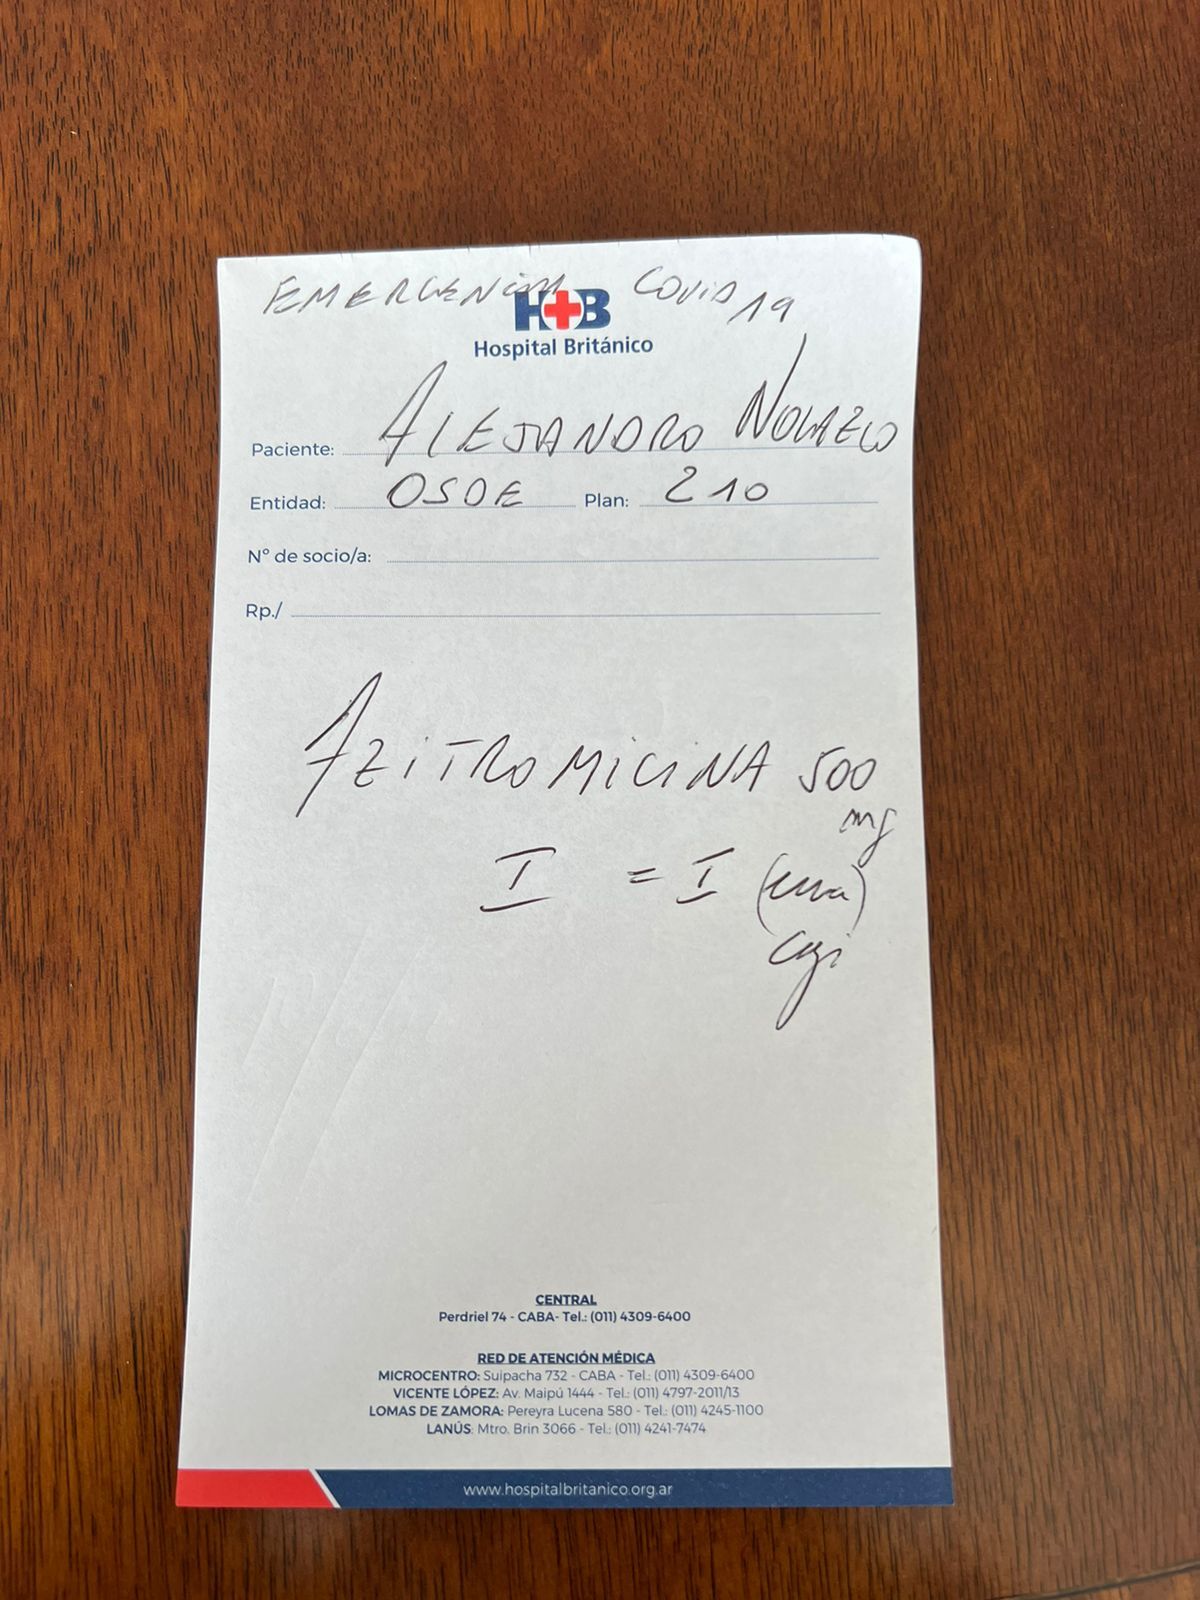 EMERGENCIA COVID 19
H+B
Hospital Británico
Paciente: ALEJANDRO
Entidad: OSDE Plan: 210
Nº de socio/a:
Rp./
AZITROMICINA 500
mg
I = I (una)
CENTRAL
Perdriel 74 - CABA- Tel.: (011) 4309-6400
RED DE ATENCIÓN MÉDICA
MICROCENTRO: Suipacha 732 - CABA - Tel.: (011) 4309-6400
VICENTE LÓPEZ: Av. Maipú 1444 - Tel.: (011) 4797-2011/13
LOMAS DE ZAMORA: Pereyra Lucena 580 - Tel.: (011) 4245-1100
LANÚS: Mtro. Brin 3066 - Tel.: (011) 4241-7474
www.hospitalbritanico.org.ar